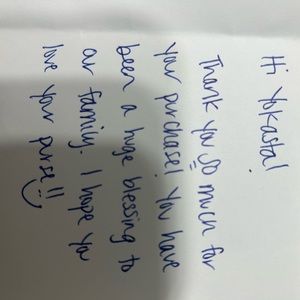 Hi Yokasta!
Thank you so much for
your purchase! You have
been a huge blessing to
our family. I hope you
love your purse!!